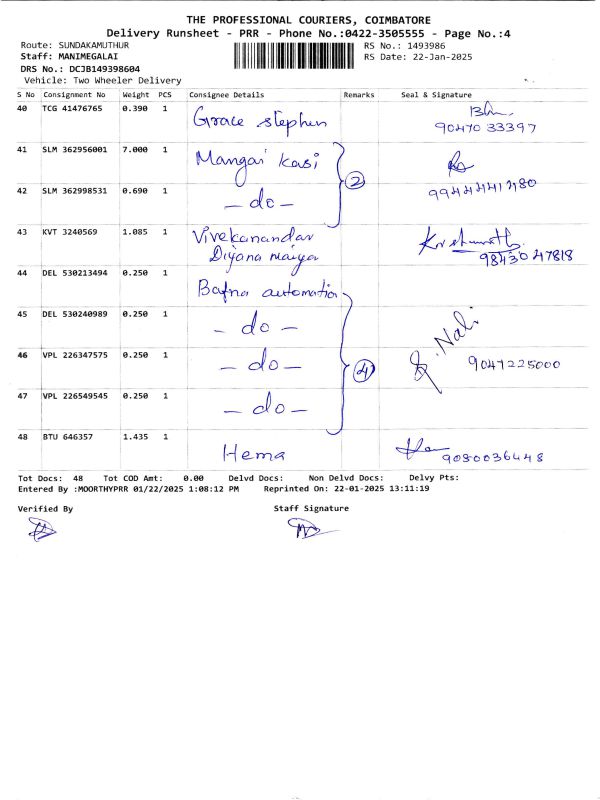 THE PROFESSIONAL COURIERS, COIMBATORE
Delivery Runsheet - PRR - Phone No.:0422-3505555 - Page No.:4
Route: SUNDAKAMUTHUR RS No.: 1493986
Staff: MANIMEGALAI RS Date: 22-Jan-2025
DRS No.: DCJB149398604
Vehicle: Two Wheeler Delivery
S No Consignment No Weight PCS Consignee Details Remarks Seal & Signature
40 TCG 41476765 0.390 1 Grace stephen
90470 33397
41 SLM 362956001 7.000 1 Mangai kasi
2
42 SLM 362998531 0.690 1 - do -
43 KVT 3240569 1.085 1 Vivekanandar
98430 47818
44 DEL 530213494 0.250 1 Bafna automation
45 DEL 530240989 0.250 1 - do -
46 VPL 226347575 0.250 1 - do - 4 9047225000
47 VPL 226549545 0.250 1 - do -
48 BTU 646357 1.435 1 Hema 9080036448
Tot Docs: 48 Tot COD Amt: 0.00 Delvd Docs: Non Delvd Docs: Delvy Pts:
Entered By :MOORTHYPRR 01/22/2025 1:08:12 PM Reprinted On: 22-01-2025 13:11:19
Verified By Staff Signature